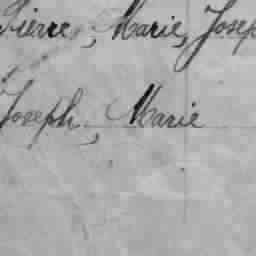 Pierre, Marie, Josep
Joseph, Marie